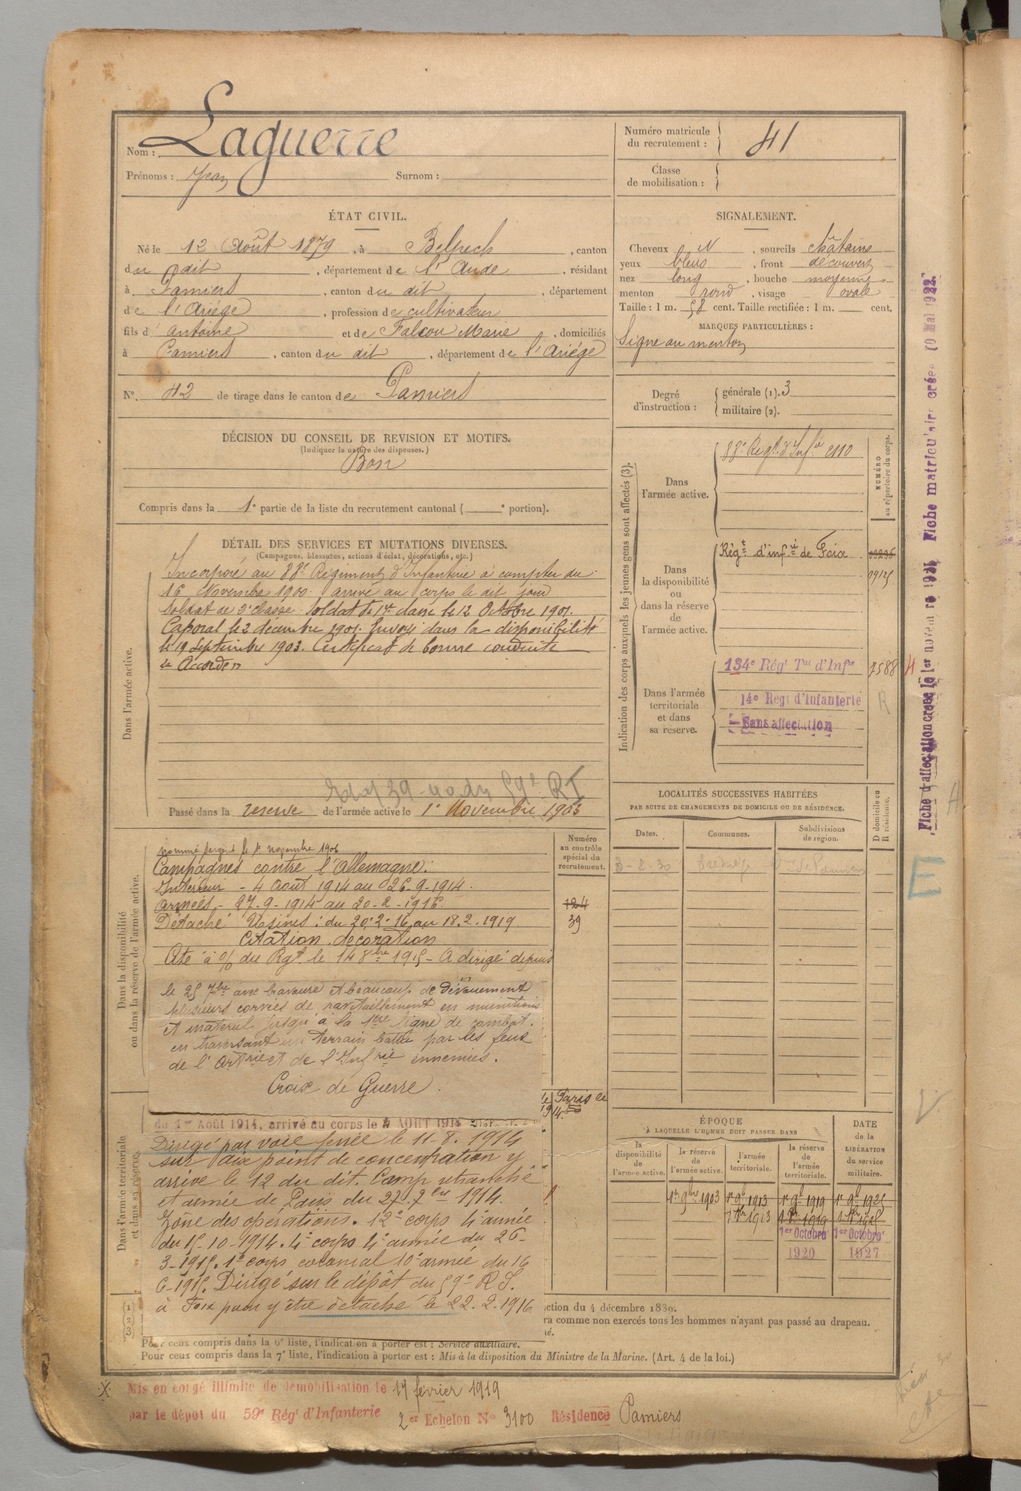 Nom : Laguerre
Prénoms : Jean Surnom :
Numéro matricule du recrutement : 41
Classe de mobilisation :
ÉTAT CIVIL.
Né le 12 Août 1879, à Belpech, canton
du dit, département de l'Aude, résidant
à Pamiers, canton du dit, département
de l'Ariége, profession de cultivateur
fils d'Antoine et de Falcou Marie, domiciliés
à Pamiers, canton du dit, département de l'Ariége
N°. 42 de tirage dans le canton de Pamiers
SIGNALEMENT.
Cheveux N, sourcils châtains
yeux bleus, front découvert
nez long, bouche moyenne
menton rond, visage ovale
Taille : 1 m. 58 cent. Taille rectifiée : 1 m. cent.
MARQUES PARTICULIÈRES :
Signe au menton
Degré d'instruction : générale (1). 3
militaire (2).
DÉCISION DU CONSEIL DE REVISION ET MOTIFS.
(Indiquer la nature des dispenses.)
Bon
Compris dans la 1e partie de la liste du recrutement cantonal ( e portion).
DÉTAIL DES SERVICES ET MUTATIONS DIVERSES.
(Campagnes, blessures, actions d'éclat, décorations, etc.)
Dans l'armée active.
Incorporé au 88e Régiment d'Infanterie à compter du
16 Novembre 1900 arrivé au corps le dit jour
Soldat de 2e classe Soldat de 1re classe le 12 Octobre 1901.
Caporal le 2 décembre 1901. Envoyé dans la disponibilité
le 19 Septembre 1903. Certificat de bonne conduite
Accordé
59e RI
Passé dans la réserve de l'armée active le 1er Novembre 1903
Indication des corps auxquels les jeunes gens sont affectés (3).
NUMÉRO au répertoire du corps.
Dans l'armée active.
88e Regt d'Infie 2110
Dans la disponibilité ou dans la réserve de l'armée active.
Régt d'infie de Foix
Dans l'armée territoriale et dans sa réserve.
134e Régt Tal d'Infie 2588
14e Regt d'Infanterie
Sans affectation
LOCALITÉS SUCCESSIVES HABITÉES
PAR SUITE DE CHANGEMENTS DE DOMICILE OU DE RÉSIDENCE.
Dates. Communes. Subdivisions de région. D domicile ou R résidence.
Dans la disponibilité ou dans la réserve de l'armée active.
Numéro au contrôle spécial du recrutement.
124
39
nommé sergent le 1er novembre 1906
Campagnes contre l'Allemagne :
Intérieur - 4 Août 1914 au 26-9-1914.
Armées - 27-9-1914 au 20-2-1916
Détaché Usines : du 20-2-16 au 18-2-1919
Citation, décoration
Cité à o/ du Rgt le 14 8bre 1915 - A dirigé depuis
le 25 7bre avec bravoure et beaucoup de dévouement
plusieurs corvées de ravitaillement en munitions
et matériel jusqu'à la 1ère ligne de combat,
en traversant un terrain battu par les feux
de l'Artrie et de l'Infrie ennemies.
Croix de Guerre.
Paris le
Dans l'armée territoriale et dans sa réserve.
du 1er Août 1914, arrivé au corps le 4 AOUT 1914
Dirigé par voie ferrée le 11.8.1914
sur Paix point de concentration y
arrivé le 12 du dit. Camp retranché
et armée de Paris du 27 7bre 1914.
Zône des opérations. 12e corps 4e armée
du 15-10-1914. 4e corps 4e armée du 26-
3-1915. 1er corps colonial 10e armée du 16
6-1915. Dirigé sur le dépôt du 59e R.I.
à Foix pour y être détaché le 22.2.1916
ÉPOQUE
À LAQUELLE L'HOMME DOIT PASSER DANS
la disponibilité de l'armée active. la réserve de l'armée active. l'armée territoriale. la réserve de l'armée territoriale. DATE de la LIBÉRATION du service militaire.
1er 9bre 1903 1er 9b 1913 1er 9b 1919 1er 9b 1925
1er Octobre 1920 1er Octobre 1927
ction du 4 décembre 1889.
ra comme non exercés tous les hommes n'ayant pas passé au drapeau.
Pour ceux compris dans la 6e liste, l'indication à porter est : Service auxiliaire.
Pour ceux compris dans la 7e liste, l'indication à porter est : Mis à la disposition du Ministre de la Marine. (Art. 4 de la loi.)
Mis en congé illimité de démobilisation le 19 février 1919
par le dépôt du 59e Régt d'Infanterie 2e Echelon N° 3100 Résidence Pamiers
Fiche d'affectation créée le 1er novembre Fiche matriculaire créée 10 Mai 1922